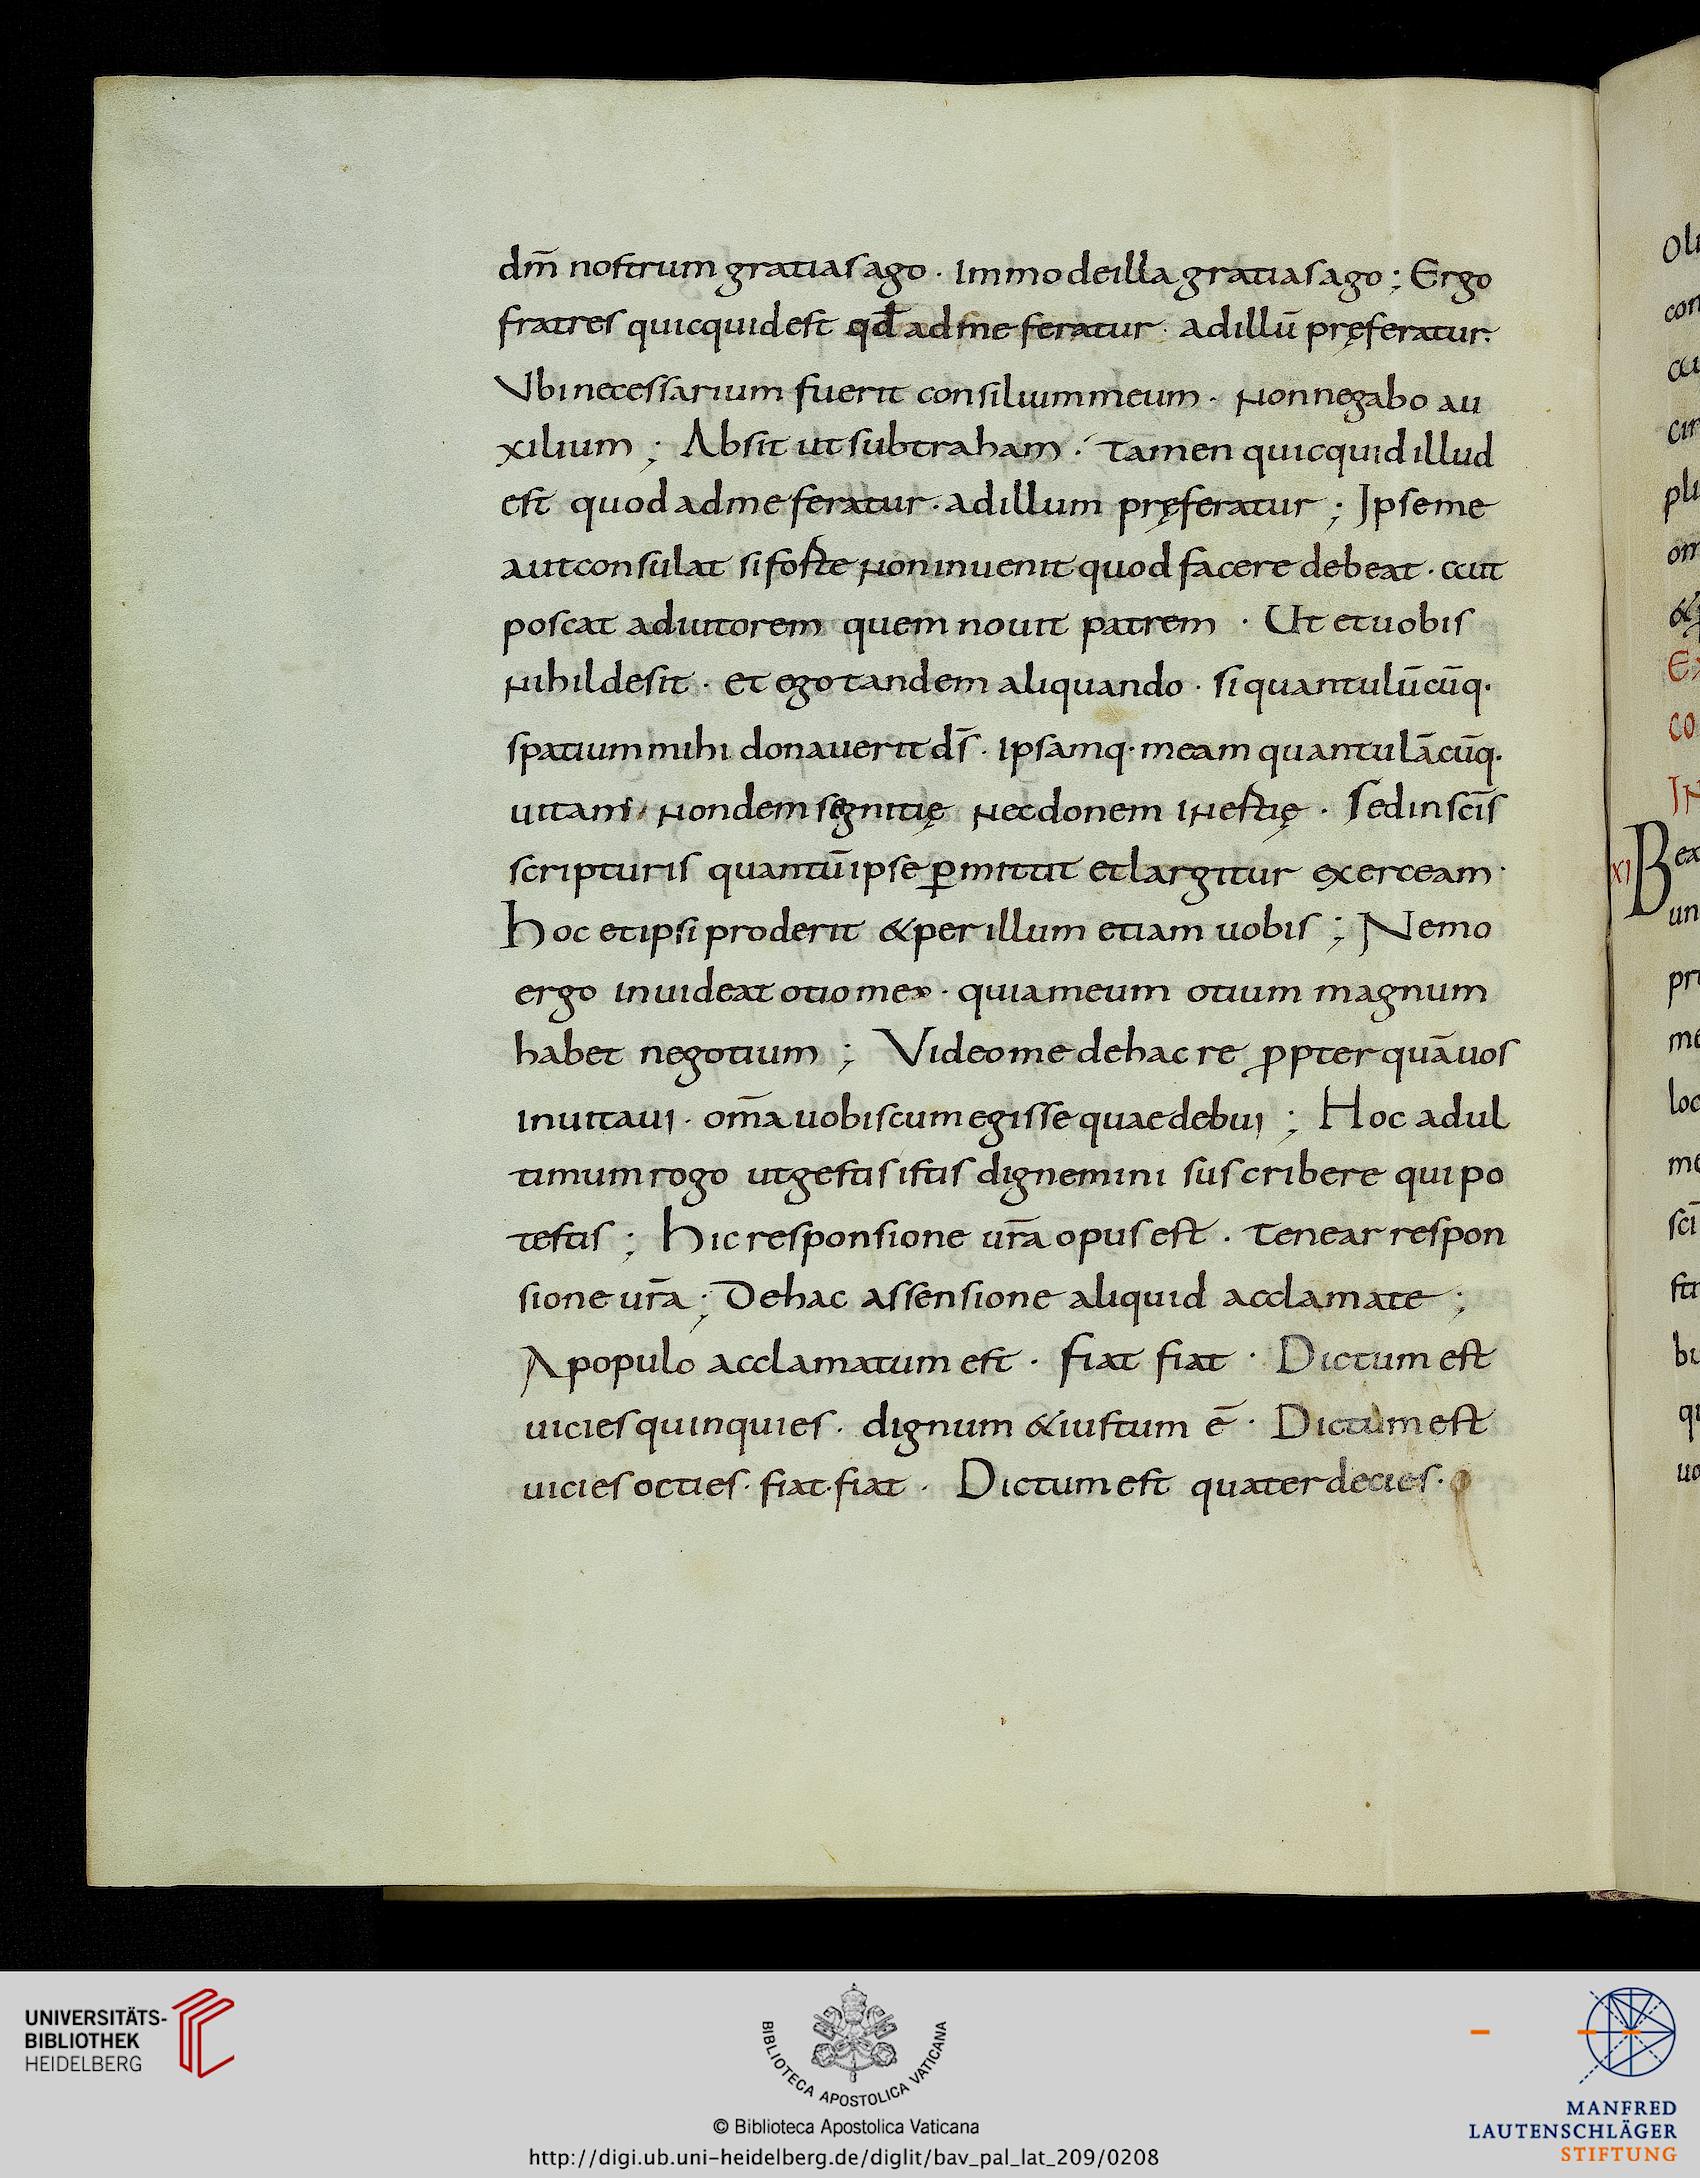 dm̄ nostrum gratias ago · Immo deilla gratias ago ; Ergo
fratres quicquid est qđ adme feratur · adillū pręferatur.
Vbi necessarium fuerit consilium meum · Non negabo au
xilium ; Absit ut subtraham · Tamen quicquid illud
est quod adme feratur · adillum pręferatur ; Ipse me
aut consulat si forte Non inuenit quod facere debeat · aut
poscat adiutorem quem nouit patrem · Ut et uobis
Nihil desit · et ego tandem aliquando · si quantulūcūq·
spatium mihi donauerit dī · ipsamq· meam quantulācūq·
uitam Non dem segnitię Nec donem iNertię · Sed in scīs
scripturis quantū ipse ꝑmittit et largitur exerceam ·
Hoc et ipsi proderit & per illum etiam uobis ; Nemo
ergo inuideat otio meo · quia meum otium magnum
habet negotium ; Video me de hac re ꝓpter quā uos
inuitaui · om̄a uobiscum egisse quae debui ; Hoc ad ul
timum rogo ut gestis istis dignemini suscribere qui po
testis ; Hic responsione ur̄a opus est · Tenear respon
sione ur̄a ; De hac assensione aliquid acclamate ;
A populo acclamatum est · fiat fiat · Dictum est
uicies quinquies · dignum & iustum ē · Dictum est
uicies octies · fiat · fiat · Dictum est quater decies ·
con
plu
&
Ex
co
IN
XI
B
ex
un
me
loc
me
scī
UNIVERSITÄTS-
BIBLIOTHEK
HEIDELBERG
BIBLIOTECA APOSTOLICA VATICANA
© Biblioteca Apostolica Vaticana
http://digi.ub.uni-heidelberg.de/diglit/bav_pal_lat_209/0208
MANFRED
LAUTENSCHLÄGER
STIFTUNG